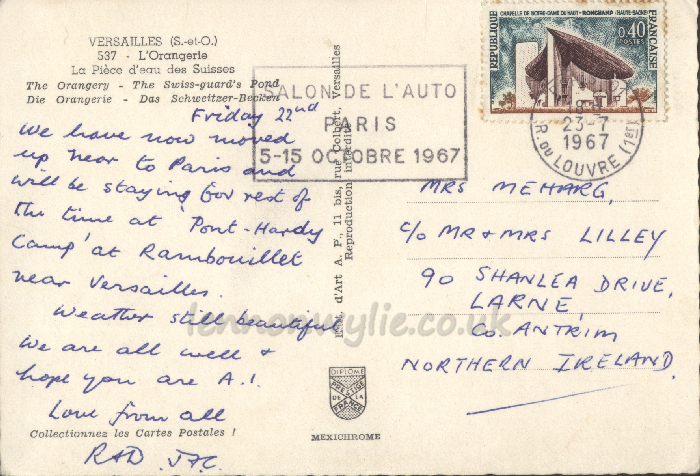 VERSAILLES (S.-et-O.)
537 - L'Orangerie
La Pièce d'eau des Suisses
The Orangery - The Swiss-guard's Pond
Die Orangerie - Das Schweitzer-Becken
Friday 22nd
We have now moved
up near to Paris and
will be staying for rest of
the time at 'Pont-Hardy
Camp' at Rambouillet
near Versailles.
Weather still beautiful
We are all well &
hope you are A.1.
Love from all
Collectionnez les Cartes Postales !
RAD. J.F.C.
d'Art A. P., 11 bis, rue Colbert, Versailles
Reproduction interdite
DIPLOME
PRESTIGE
DE LA
FRANCE
MEXICHROME
SALON DE L'AUTO
PARIS
5-15 OCTOBRE 1967
CHAPELLE DE NOTRE-DAME DU HAUT - RONCHAMP (HAUTE-SAÔNE)
REPUBLIQUE
FRANÇAISE
0,40
POSTES
23-7
1967
R. DU LOUVRE (1er)
MRS MEHARG,
c/o MR & MRS LILLEY
90 SHANLEA DRIVE,
LARNE,
CO. ANTRIM
NORTHERN IRELAND.
lennonwylie.co.uk